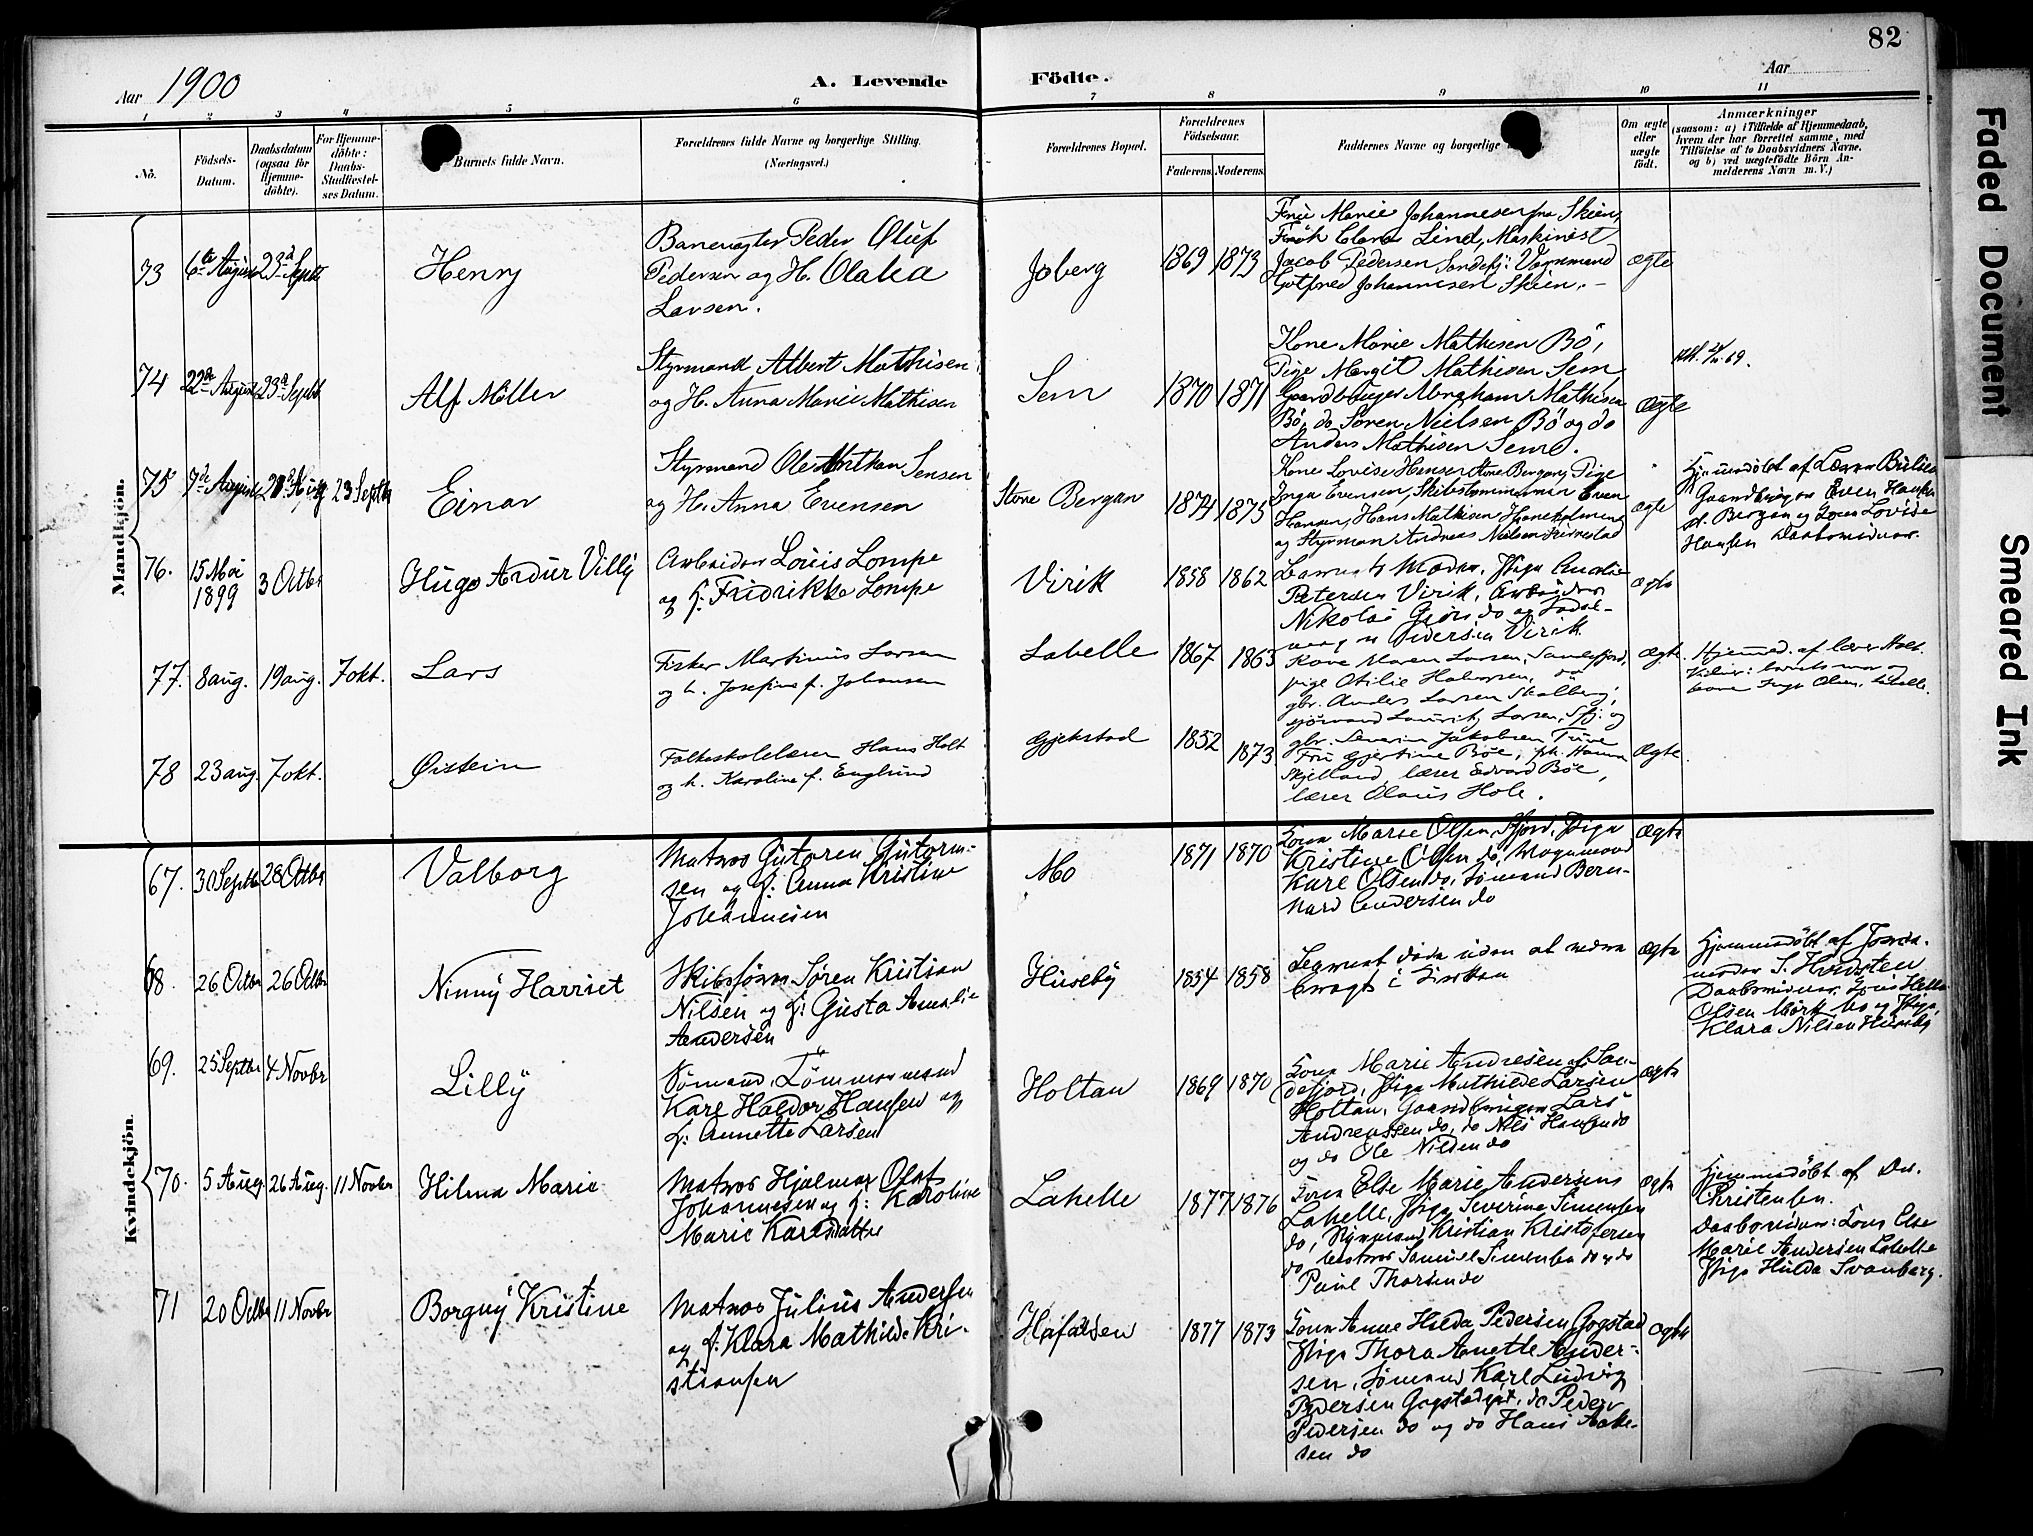 82
Aar 1900
A. Levende Födte.
Aar
1 2 3 4 5 6 7 8 9 10 11
No.
Födsels-Datum.
Daabsdatum (ogsaa for Hjemme-döbte).
For Hjemme-döbte: Daabs-Stadfæstel-ses Datum.
Barnets fulde Navn.
Forældrenes fulde Navne og borgerlige Stilling. (Næringsvei.)
Forældrenes Bopæl.
Forældrenes Födselsaar.
Faderens. Moderens.
Faddernes Navne og borgerlige
Om ægte eller uægte födt.
Anmærkninger
(saasom: a) i Tilfælde af Hjemmedaab, hvem der har forrettet samme, med Tilföielse af to Daabsvidners Navne, og b) ved uægtefödte Börn An-melderens Navn m. V.)
Mandkjön.
73 6te August 23d Septb Henry
Banevogter Peder Oluf
Pedersen og H. Olaka
Larsen.
Joberg 1869 1873
Frue Marie Johannesen fra Skien,
Frøk Clara Lind, Maskinist
Jacob Pedersen Sandefj: Værnmand
Gotfred Johannesen Skien.
ægte
74 22de August 23d Septb Alf Möller
Styrmand Albert Mathisen
og H. Anna Marie Mathisen
Sem 1870 1871
Kone Marie Mathisen Bö,
Pige Margit Mathisen Sem,
Gaardbruger Abraham Mathisen
Bö, do Søren Nielsen Bö og do
Anders Mathisen Sem.
ægte
75 7de August 23 Septb Einar
Styrmand Ole Anthon Jensen
og H. Anna Evensen
Store Bergan 1874 1875
Kone Lovise Hansen Store Bergan, Pige
Inga Evensen, Skibstømmermand Even
Hansen, Hans Mathisen
og Styrmand Andreas Nielsen
ægte
Hjemmedöbt af
Gaardbruger Even Hansen
st. Bergan og Kone Lovise
Hansen Daabsvidner.
76. 15 Mai 1899 3 Octbr Hugo Ardur Villy
Arbeider Louis Lompe
og h: Fridrikke Lompe
Virik 1858 1862
Barnets Moder, Pige Amalie
Petersen Virik, Arbeider
Nikolai do og
Pedersen Virik
ægte
77. 8 aug. 19 aug. 7 okt. Lars
Fisker Martinius Larsen
og h. Josefine f. Johansen
Labelle 1867 1863
Kone Maren Larsen, Sandefjord,
pige Otilie Halvorsen, do
gbr. Anders Larsen Skolberg,
sjømand Laurits Larsen, Sfj. og
gbr. Severin Jakobsen Tuve
ægte
Hjemmed. af lærer Holt.
Vidner: barnets mor og
kone Inga Olsen, Labelle.
78 23 aug. 7 okt. Øistein
Folkeskolelærer Hans Holt
og h. Karoline f. Englund
Gjekstad 1852 1873
Fru Gjertine Bøe, frk. Hanna
Skjelland, lærer Edvard Bøe,
lærer Olaus Hole.
ægte
Kvindekjön.
67. 30 Septbr 28 Octbr Valborg
Matros Gutoren Gutorm-
sen og h: Anna Kristine
Johannesen
Mo 1871 1870
Kone Marie Olsen, Pige
Kristine Olsen do, Vognmand
Karl Olsen do, Sømand Bern-
hard Andersen do
ægte
68. 26 Octbr 26 Octbr Ninny Harriet
Skibsfører Søren Kristian
Nilsen og h: Gusta Amalie
Andersen
Huseby 1854 1858
Barnet døde uden at være
bragt i Kirken
ægte
Hjemmedöbt af Jorde-
moder S.
Daabsvidner, Kone Helle
Olsen Mørk Mo og Pige
Klara Nilsen Huseby
69. 25 Septbr 4 Novbr Lilly
Sømand, Tømmermand
Karl Haldor Hansen og
h: Annette Larsen
Holtan 1869 1870
Kone Marie Andresen af San-
defjord, Pige Mathilde Larsen
Holtan, Gaardbruger Lars
Andreassen do, do Nils Hansen do
og do Ole Nilsen do
ægte
70. 5 Aug. 26 Aug. 11 Novbr Hilma Marie
Matros Hjalmar Olaf
Johannesen og h: Karoline
Marie Karlsdatter
Labelle 1877 1876
Kone Else Marie Andersens
Labelle, Pige Severine Simensen
do, Styrmand Kristian Kristofersen
do, Matros Samuel Simensen do og do
Paul Thorsen do
ægte
Hjemmedöbt af Dr.
Christensen.
Daabsvidner: Kone Else
Marie Andersen Labelle
Pige Hulda Svanberg.
71 20 Octbr 11 Novbr Borgny Kristine
Matros Julius Andersen
og h: Klara Mathilde Kri-
stiansen
1877 1873
Kone Anne Hilda Pedersen Gogstad
Pige Thora Anette Ander-
sen, Sømand Karl Ludvig
Pedersen Gogstadejet, do Peder
Pedersen do og do Hans Aake-
sen do
ægte
Faded Document
Smeared Ink